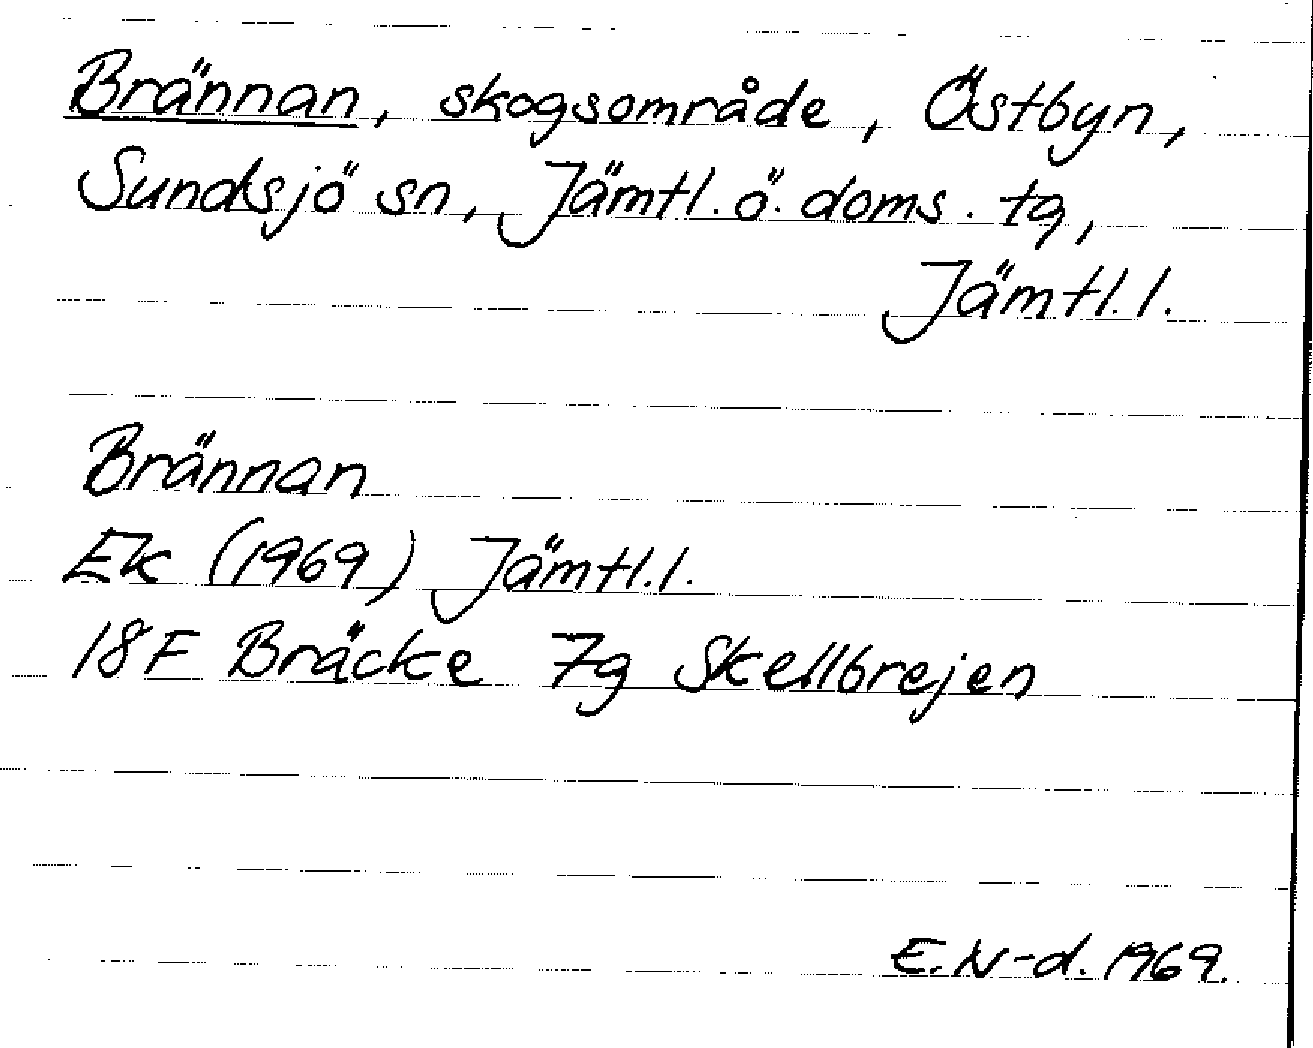 Brännan, skogsområde, Östbyn,
Sundsjö sn, Jämtl. ö. doms. tg,
Jämtl. l.
Brännan
Ek (1969) Jämtl. l.
18F Bräcke 7g Skellbrejen
E. N-d. 1969.